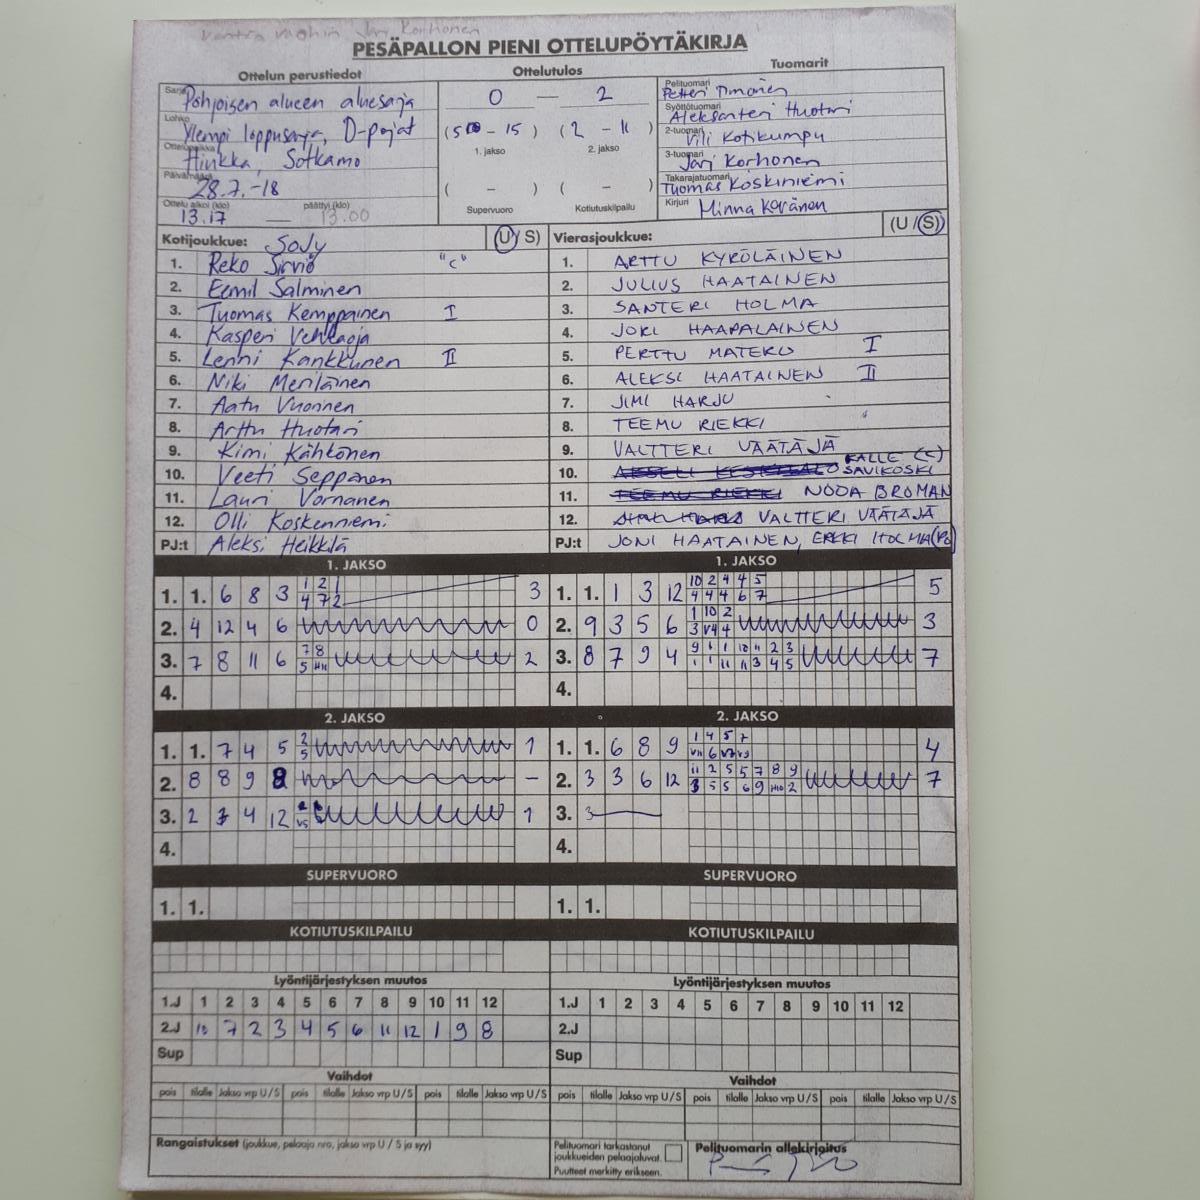 Jari Korhonen
PESÄPALLON PIENI OTTELUPÖYTÄKIRJA
Ottelun perustiedot
Sarja Pohjoisen alueen aluesarja
Lohko Ylempi loppusarja, D-pojat
Ottelupaikka Hiukka, Sotkamo
Päivämäärä 28.7.-18
Ottelu alkoi (klo) päättyi (klo)
13.17 — 13.00
Ottelutulos
0 — 2
(5 - 15) (2 - 11)
1. jakso 2. jakso
( - ) ( - )
Supervuoro Kotiutuskilpailu
Tuomarit
Pelituomari
Syöttötuomari Aleksanteri Huotari
2-tuomari Vili Kotikumpu
3-tuomari Jari Korhonen
Takarajatuomari Tuomas Koskiniemi
Kirjuri Minna Keränen
Kotijoukkue: SoJy (U/S)
1. Reko Sirviö "C"
2. Eemil Salminen
3. Tuomas Kemppainen I
4. Kasperi Vehkaoja
5. Lenni Kankkunen II
6. Niki Meriläinen
7. Aatu Vuorinen
8. Arttu Huotari
9. Kimi Kähkönen
10. Veeti Seppänen
11. Lauri Vornanen
12. Olli Koskenniemi
PJ:t Aleksi Heikkilä
Vierasjoukkue: (U/S)
1. ARTTU KYRÖLÄINEN
2. JULIUS HAATAINEN
3. SANTERI HOLMA
4. JORI HAAPALAINEN
5. PERTTU MATERO I
6. ALEKSI HAATAINEN II
7. JIMI HARJU
8. TEEMU RIEKKI
9. VALTTERI VÄÄTÄJÄ
10. KALLE (C) SAVIKOSKI
11. TEEMU RIEKKI NOOA BROMAN
12. VALTTERI VÄÄTÄJÄ
PJ:t JONI HAATAINEN, ERKKI HOLMA
1. JAKSO
1. 1. 6 8 3 1 2 1 3
4 7 2
2. 4 12 4 6 0
3. 7 8 11 6 7 8 2
5
4.
1. JAKSO
1. 1. 1 3 12 10 2 4 4 5 5
4 4 4 6 7
2. 9 3 5 6 1 10 2 3
3 4
3. 8 7 9 4 7
4.
2. JAKSO
1. 1. 7 4 5 2 1
5
2. 8 8 9 8 -
3. 2 3 4 12 1
4.
2. JAKSO
1. 1. 6 8 9 1 4 5 7 4
6
2. 3 3 6 12 11 2 5 5 7 8 9 7
3 5 5 6 9 2
3. 3
4.
SUPERVUORO
1. 1.
SUPERVUORO
1. 1.
KOTIUTUSKILPAILU
KOTIUTUSKILPAILU
Lyöntijärjestyksen muutos
1.J 1 2 3 4 5 6 7 8 9 10 11 12
2.J 10 7 2 3 4 5 6 11 12 1 9 8
Sup
Lyöntijärjestyksen muutos
1.J 1 2 3 4 5 6 7 8 9 10 11 12
2.J
Sup
Vaihdot
pois tilalle Jakso vrp U/S pois tilalle Jakso vrp U/S pois tilalle Jakso vrp U/S
Vaihdot
pois tilalle Jakso vrp U/S pois tilalle Jakso vrp U/S pois tilalle Jakso vrp U/S
Rangaistukset (joukkue, pelaaja nro, jakso vrp U / S ja syy)
Pelituomari tarkastanut
joukkueiden pelaajaluvat.
Puutteet merkitty erikseen.
Pelituomarin allekirjoitus